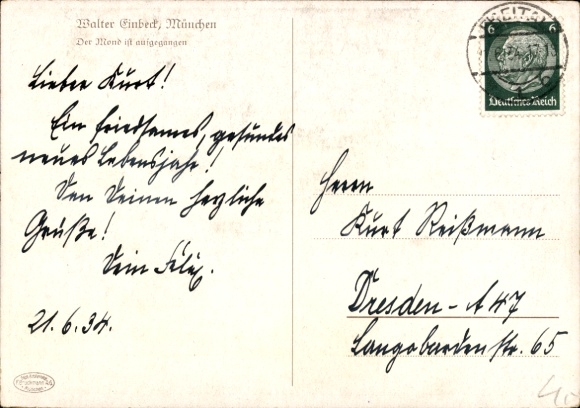 Walter Einbeck, München
Der Mond ist aufgegangen
Lieber Kurt!
Ein friedsames, gesundes
neues Lebensjahr!
Den Deinen herzliche
Grüße!
Dein Felix.
21.6.34.
6 6
Deutsches Reich
Herrn
Kurt Reißmann
Dresden-A 47
Langobardenstr. 65
40